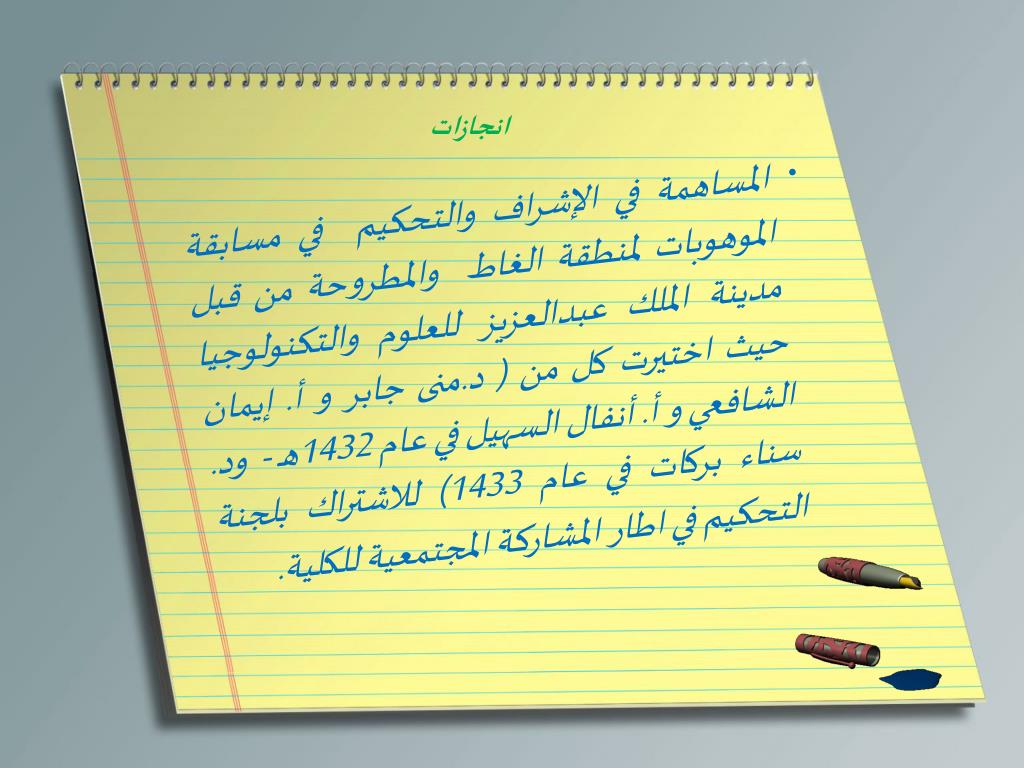 انجازات
• المساهمة في الإشراف والتحكيم في مسابقة
الموهوبات لمنطقة الغاط والمطروحة من قبل
مدينة الملك عبدالعزيز للعلوم والتكنولوجيا
حيث اختيرت كل من ( د.منى جابر و أ. إيمان
الشافعي و أ. أنفال السهيل في عام 1432هـ - ود.
سناء بركات في عام 1433) للاشتراك بلجنة
التحكيم في اطار المشاركة المجتمعية للكلية.